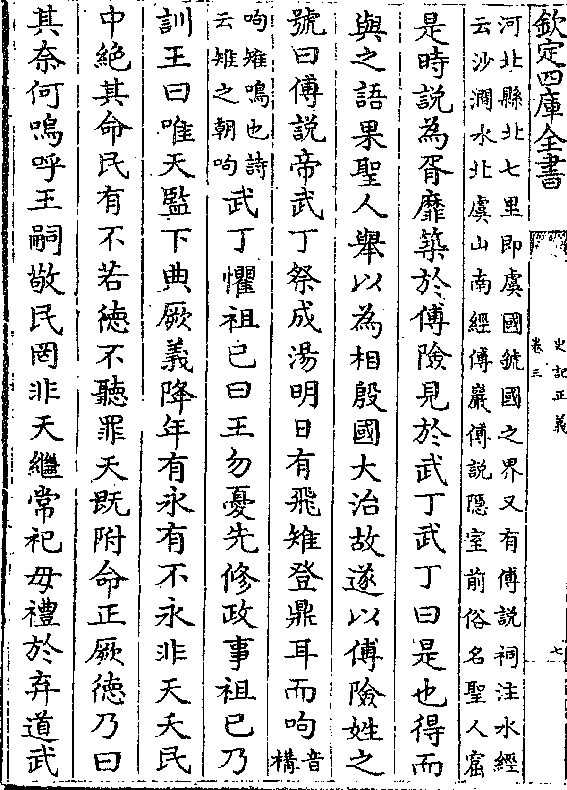 欽定四庫全書
史記正義
卷三
七
河北縣北七里即虞國虢國之界又有傅說祠注水經
云沙澗水北虞山南經傅巖傅說隱室前俗名聖人窟
是時說為胥靡築於傅險見於武丁武丁曰是也得而
與之語果聖人舉以為相殷國大治故遂以傅險姓之
號曰傅說帝武丁祭成湯明日有飛雉登鼎耳而呴音構
呴雉鳴也詩
云雉之朝呴
武丁懼祖已曰王勿憂先修政事祖已乃
訓王曰唯天監下典厥義降年有永有不永非天夭民
中絶其命民有不若徳不聽罪天既附命正厥徳乃曰
其奈何嗚呼王嗣敬民罔非天繼常祀毋禮於弃道武